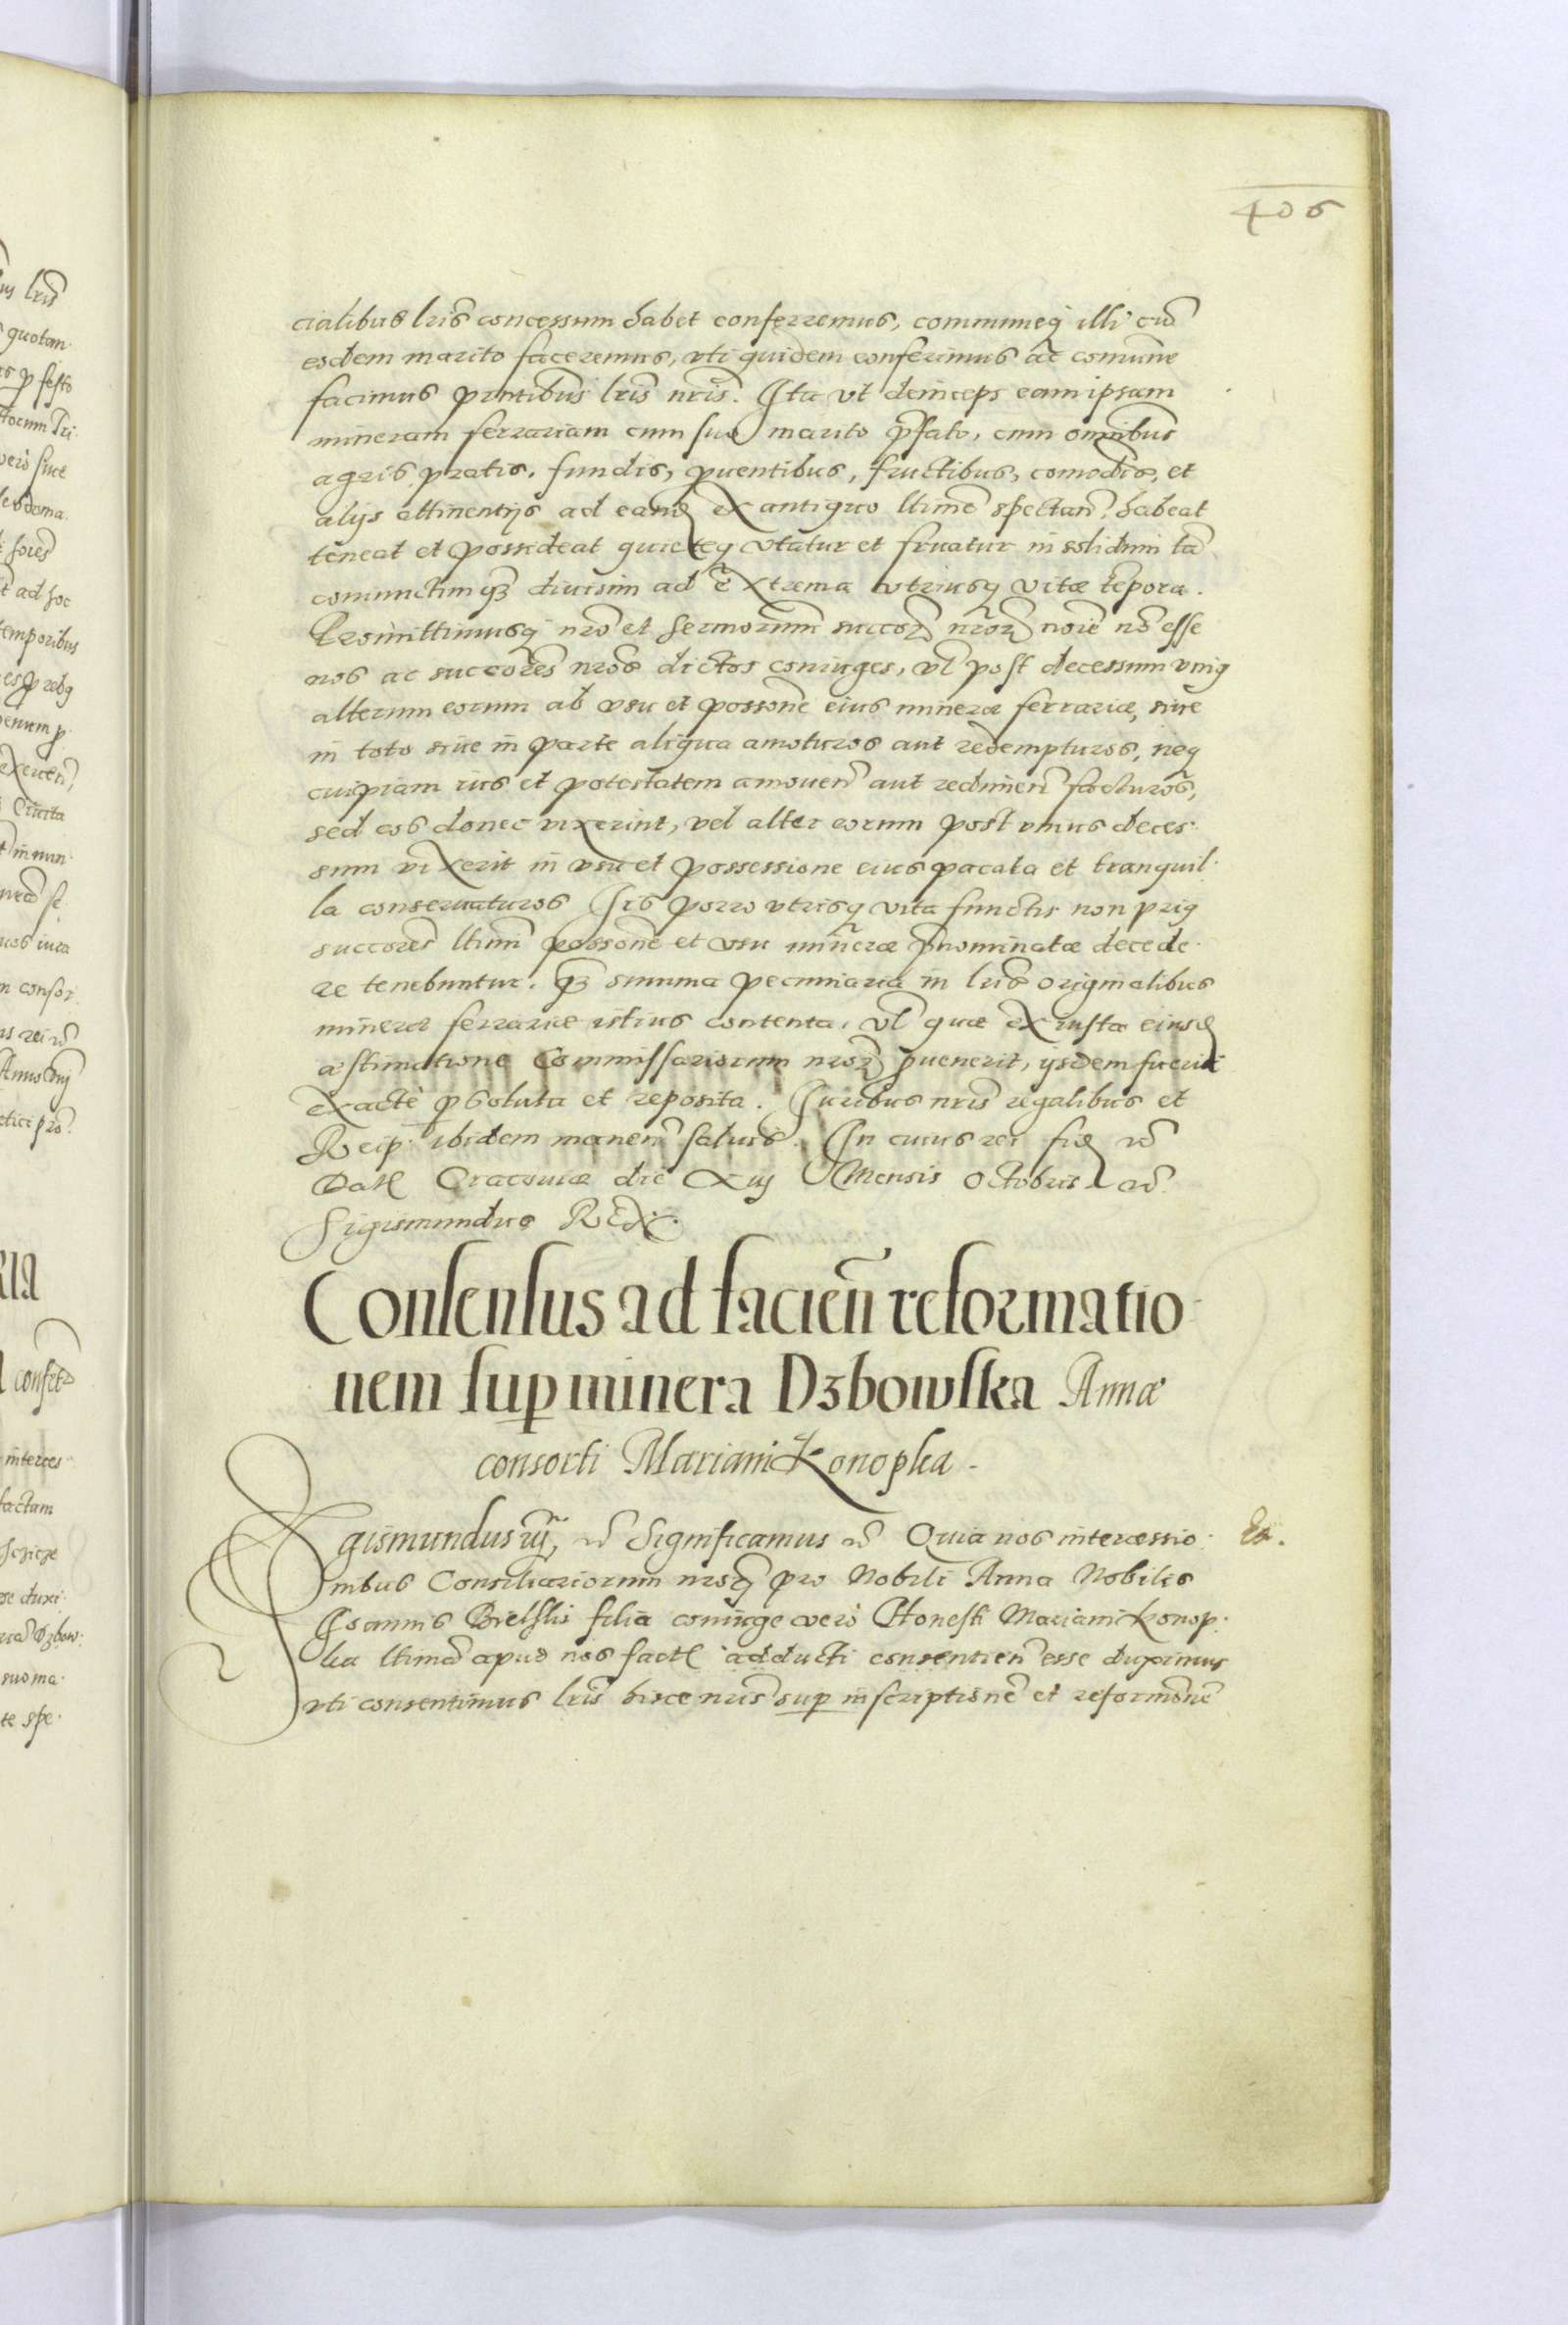 406
cialibus lris concessum habet conferremus, communeq illi cũ
eodem marito faceremus, vti quidem conferimus ac comune
facimus pntibus lris nris. Ita vt deinceps eam ipsam
mineram ferrariam cum suo marito pfato, cum omnibus
agris pratis, fundis, puentibus, fructibus, comodis, et
alijs attinentijs ad eand ex antiquo ltime spectan. habeat
teneat et possideat quieteq vtatur et fruatur in solidum tã
coniunctim q3 diuisim ad extrema vtriusq vitæ tẽpora.
Promittimusq nro et sermorum succor nror noie nõ esse
nos ac succores nros dictos coniuges, vl post decessum vniq
alterum eorum ab vsu et possone eius mineræ ferrariæ, siue
in toto siue in parte aliqua amoturos aut redempturos, neq
cuipiam ius et potestatem amouen aut redimen facturos,
sed eos donec vixerint, vel alter eorum post vnius deces
sum vixerit in vsu et possessione eius pacata et tranquil
la conseruaturos Iis porro vtrisq vita functis non priq
succores ltimi possone et vsu mineræ pnominatæ decede
re tenebuntur. q3 summa pecuniaria in lris originalibus
mineræ ferrariæ istius contenta, vl quæ ex iusta eiusd
æstimatione Commissariorum nror puenerit, ijsdem fuerit
exactè psoluta et reposita. Iuribus nris regalibus et
Reip. ibidem manen saluis. In cuius rei fid
Datt Cracouiæ die Mensis Octobris
Sigismundus Rex.
Consensus ad facien reformatio
nem sup minera Dzbowska Annæ
consorti Mariani Konopka
Sigismundus iij, Significamus Quia nos intercessio
nibus Consiliariorum nror pro Nobili Anna Nobilis
Ioannis Bielski filia coniuge vero Honesti Mariani Konop
ka ltima apud nos fact adducti consentien esse duximus
vti consentimus lris hisce nris sup inscriptione et reformone